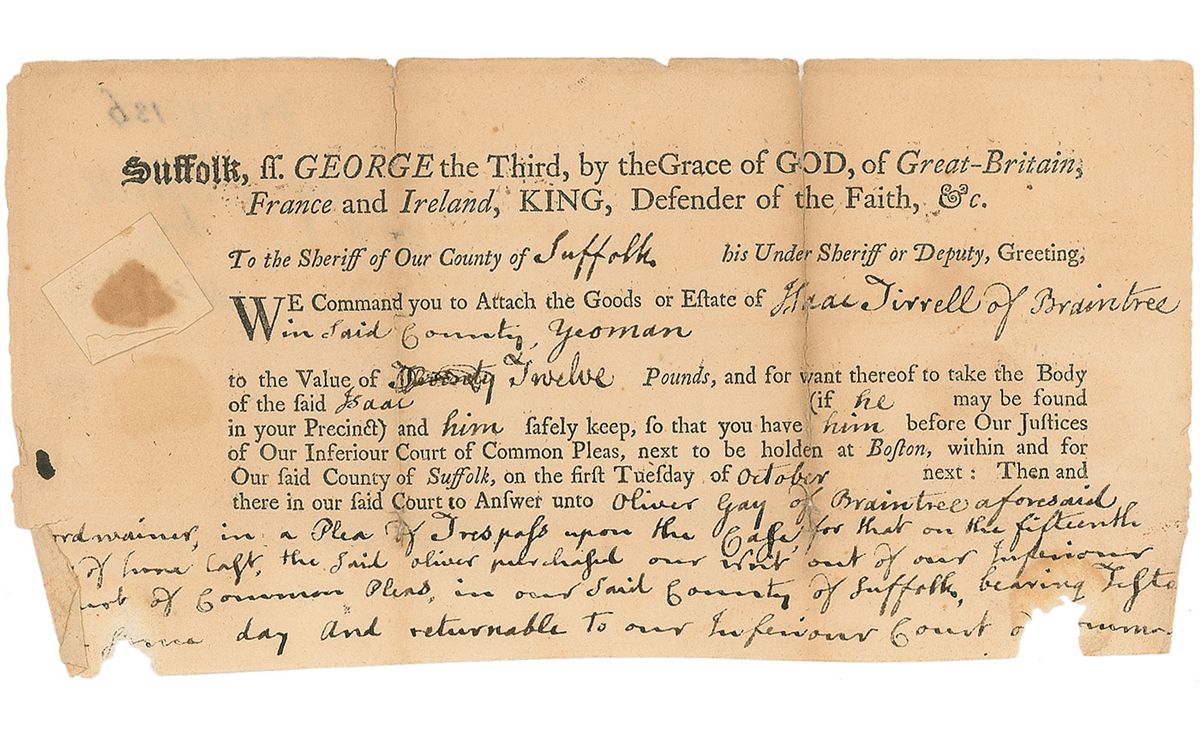 136
Suffolk, ſſ. GEORGE the Third, by the Grace of GOD, of Great-Britain,
France and Ireland, KING, Defender of the Faith, &c.
To the Sheriff of Our County of Suffolk his Under Sheriff or Deputy, Greeting,
WE Command you to Attach the Goods or Eſtate of Isaac Tirrell of Braintree
in Said County, Yeoman
to the Value of Twelve Pounds, and for want thereof to take the Body
of the ſaid Isaac (if he may be found
in your Precinct) and him ſafely keep, ſo that you have him before Our Juſtices
of Our Inferiour Court of Common Pleas, next to be holden at Boſton, within and for
Our ſaid County of Suffolk, on the firſt Tueſday of October next: Then and
there in our ſaid Court to Anſwer unto Oliver Gay of Braintree aforesaid
rdwainer, in a Plea of Treſpaſs upon the Caſe, for that on the fifteenth
of June laſt, the Said Oliver purchaſed our Writ out of our Inferiour
of Common Pleas, in our Said County of Suffolk, bearing Teſte
day And returnable to our Inferiour Court